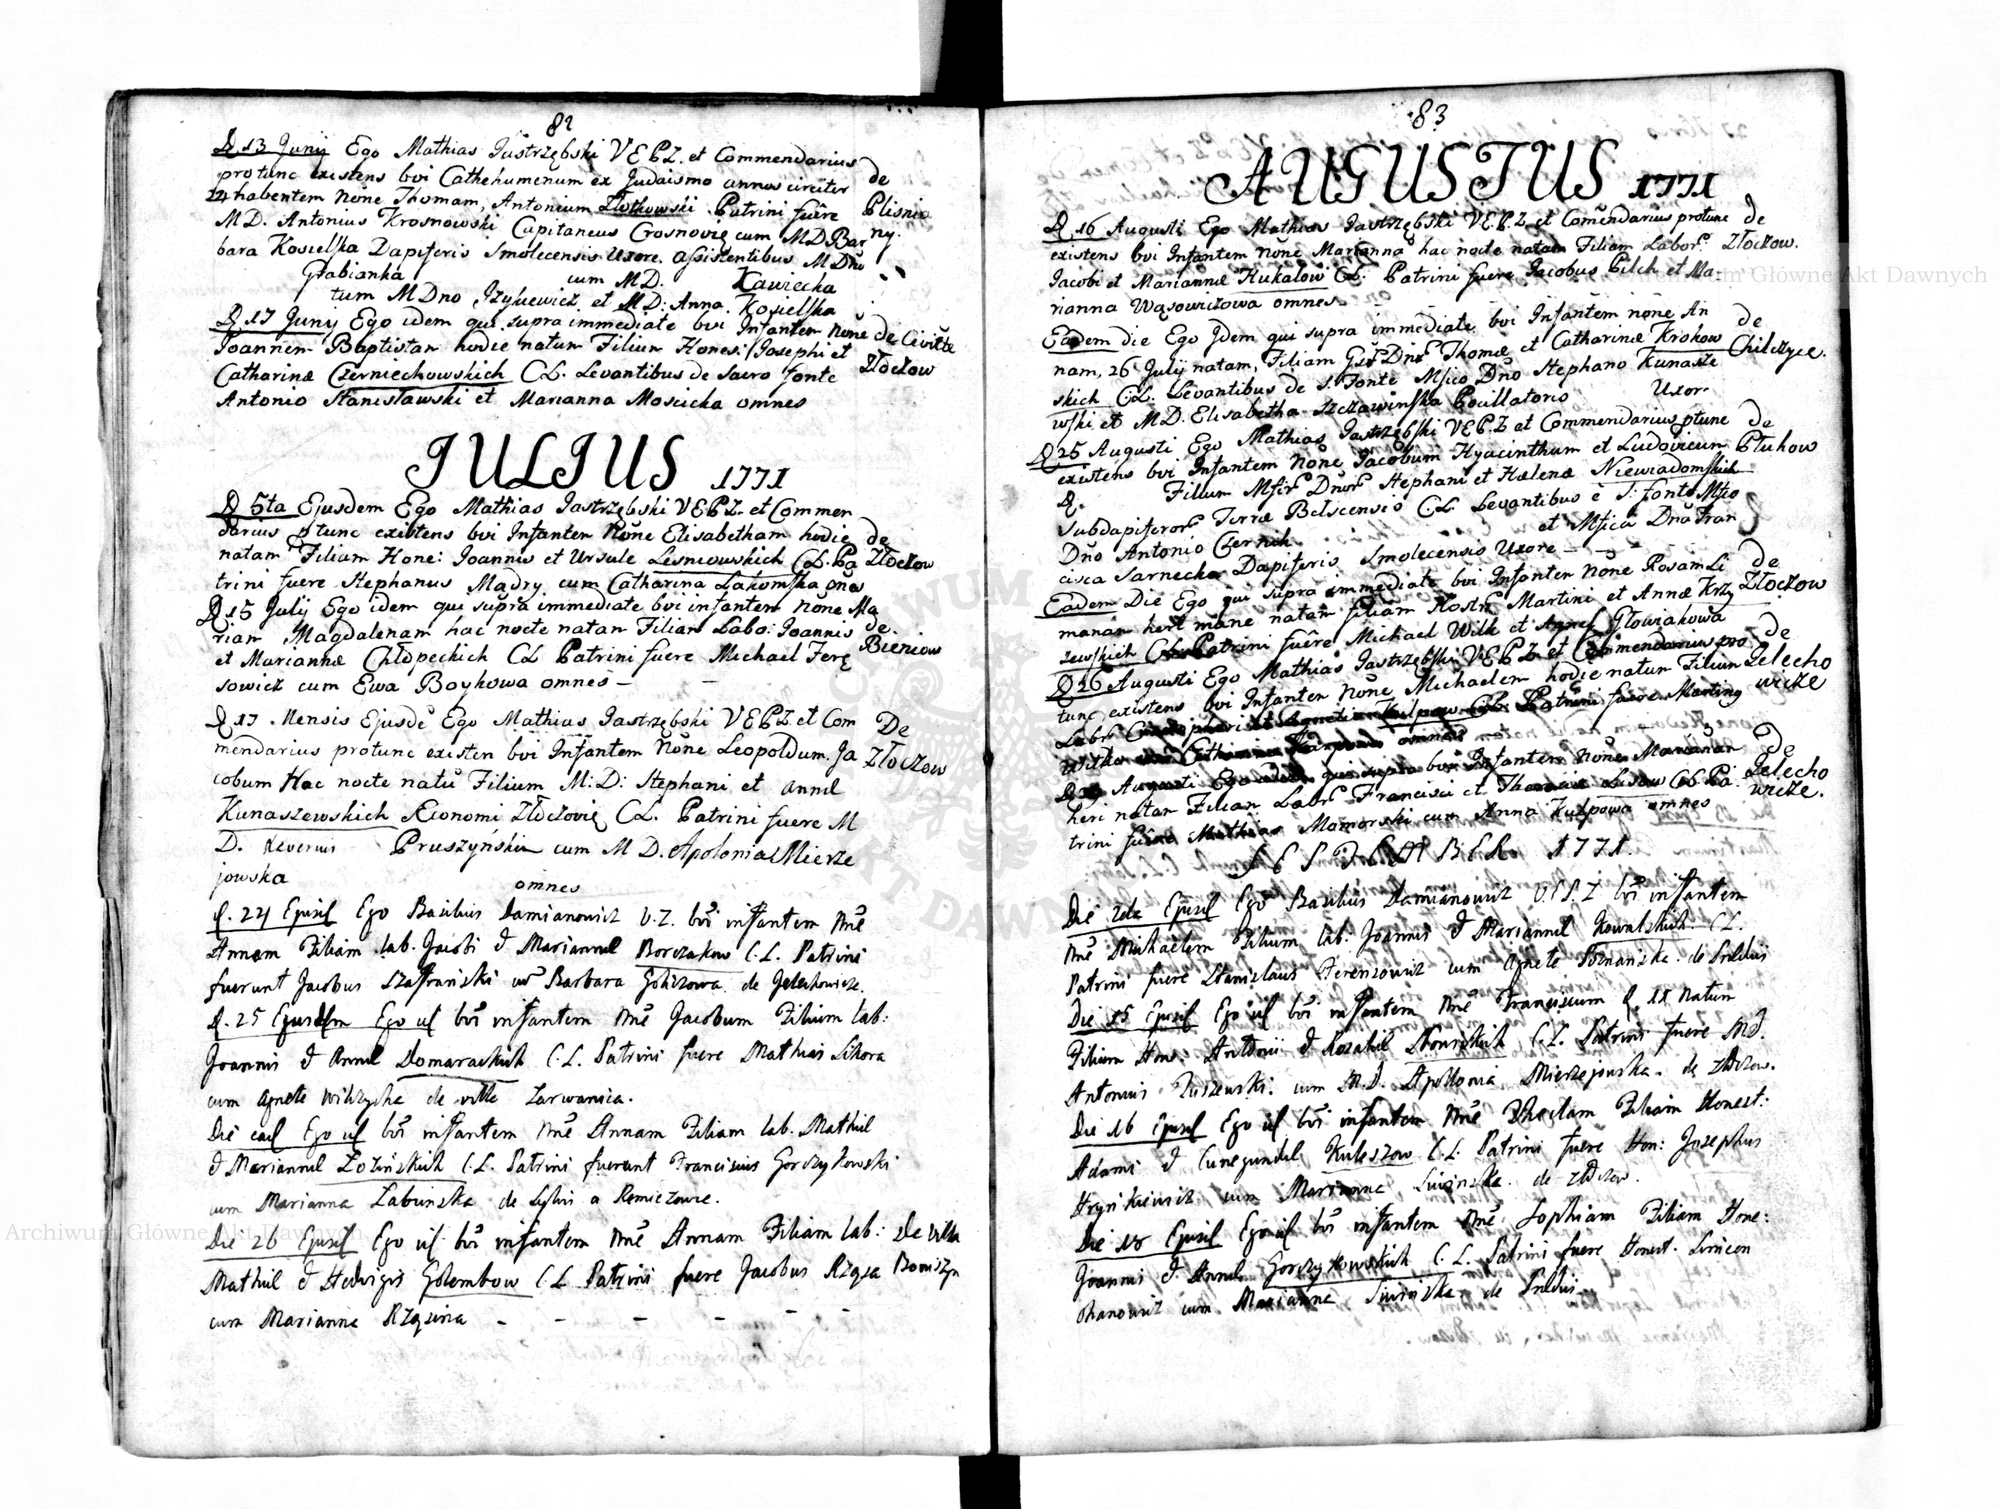 82
D 13 Junij Ego Mathias Jastrzębski VEPZ. et Commendarius
protunc existens bvi Cathehumenum ex Judaismo annos circiter de
24 habentem Nône Thomam, Antonium Złotkowski Patrini fuêre Plisnia
M D. Antonius Krosnowski Capitaneus Crosnovię cum M D Bar ny.
bara Kosielska Dapiferis Smolecensis Uxore. assistentibus M Dno
Grabianka cum M D. Kawiecka
tum M Dno et M D: Anna Kosielska
D 17 Junij Ego idem qui supra immediate bvi Infantem Nône de Civitte
Joannem Baptistam hodie natum Filium Hones: Josephi et Złoczow
Catharinæ Czerniechowskich CL. Levantibus de Sacro fonte
Antonio Stanisławski et Marianna Moscicka omnes
JULIUS 1771
D 5ta Ejusdem Ego Mathias Jastrzębski VEPZ. et Commen
darius ptunc existens bvi Infantem Nône Elisabetham hodie de
natam Filiam Hone: Joannis et Ursule Lesniowskich CL. Pa Złoczow
trini fuere Stephanus Mądry cum Catharina Łakomska
D 15 Julij Ego idem qui supra immediate bvi infantem Nône Ma
riam Magdalenam hac nocte natam Filiam Labo: Joannis de
et Mariannæ Chłopeckich CL Patrini fuere Michael Fere Bieniow
sowicz cum Ewa Boykowa omnes –
D 17 Mensis Ejusdē Ego Mathias Jastrzębski VEPZ. et Com De
mendarius protunc existen bvi Infantem Nône Leopoldum. Ja Złoczow
cobum Hac nocte natū Filium M: D: Stephani et Annæ
Kunaszewskich Æconomi Złoczovię CL. Patrini fuere M
D. Pruszyński cum M D. Apolonia Mierze
jowska omnes
d. 24 Ejusd Ego Basilius Damianowicz V. Z. bvi infantem Nne
Annam Filiam lab. Jacobi & Mariannæ Borczakow C. L. Patrini
fuerunt Jacobus Szafrański cū Barbara de Jelechowicze.
d. 25 Ejusdem Ego id bvi infantem Nne Jacobum Filium lab:
Joannis & Annæ Domarackich C. L. Patrini fuere Mathias Sikora
cum Agnete Wilczycka de villa Zarwanica.
Die ead Ego id bvi infantem Nne Annam Filiam lab. Mathiæ
& Mariannæ Łozińskich C. L. Patrini fuerunt Franciscus Gorczykowski
cum Marianna Łabunska de
Die 26 Ejusd Ego id bvi infantem Nne Annam Filiam lab: De villa
Mathiæ & Hedvigis Gołembow C. L. Patrini fuere Jacobus Rzęsa
cum Marianna Rzęsina – – – – –
83
AUGUSTUS 1771
D 16 Augusti Ego Mathias Jastrzębski VEPZ. et Comendarius protunc de
existens bvi Infantem Nône Marianna hac nocte natam Filiam Labor: Złoczow.
Jacobi et Mariannæ Kukałow CL: Patrini fuere Jacobus Pilch et Ma-
rianna Wąsowiczowa omnes.
Eadem die Ego Idem qui supra immediate bvi Infantem none An de
nam, 26 Julij natam, Filiam Dnor Thomæ et Catharinæ Krokow Chilczyce.
skich CL. Levantibus de S. Fonte Msico Dno Stephano Kunasze
wski et M D. Elisabetha Szczawinska Pocillatoris Uxor.
D 25 Augusti Ego Mathias Jastrzębski VEPZ et Commendarius ptunc de
existens bvi Infantem Nône Jacobum Hyacinthum et Ludovicum Płuhow
D. Filium Msfir Dnor Stephani et Hælenæ Niewiadomskich
Subdapiferor Terræ Belscensis CL. Levantibus è S: fonte Msico
Dno Antonio Czernik et Msica Dna Fran
cisca Sarnecka Dapiferis Smolecensis Uxore – – –
Eadem Die Ego qui supra immediate bvi Infantem Nône Rosam Li de
manam heri mane natam filiam Martini et Annæ Krzy Złoczow
zewskich CL. Patrini fuêre Michael Wilk et Agnes Głowiakowa
D 26 Augusti Ego Mathias Jastrzębski VEPZ et Commendarius pro de
tunc existens bvi Infantem Nône Michaelem hodie natum Filium Jelecho
Labr CL Patrini fuere Marting wicze
Witko omnes
Augusti Ego idem qui supra bvi Infantem Nône Marianam de
heri natam Filiam Labr Francisci et Lusow CL Pa Jelecho
trini fuêre Mathias Momorski cum Anna Kulpowa omnes wicze.
SEPTEMBER 1771.
Die 2da Ejusd Ego Basilius Damianowicz V. E P. Z bvi infantem
Nne Michaelem Filium lab: Joannis & Mariannæ Kowalskich C L.
Patrini fuere Stanislaus Ferensowicz cum Agnete Poznanska. de
Die 15 Ejusd Ego id bvi infantem Nne Franciscum d. 11 natum
Filium Hon: Antonii & Rozaliæ C. L. Patrini fuere M D.
Antonius cum M. D. Apollonia Mierzejowska. de Złoczow.
Die 16 Ejusd Ego id bvi infantem Nne Theclam Filiam Honest:
Adami & Cunegundæ Kuleszow C. L. Patrini fuere Hon: Josephus
Hrynkiewicz cum Marianna de Złoczow.
Die 18 Ejusd Ego id bvi infantem Nne Sophiam Filiam Hone:
Joannis & Annæ Gorczykowskich C. L. Patrini fuere Honest. Simeon
cum Marianna de
Archiwum Główne Akt Dawnych
Archiwum Główne Akt Dawnych